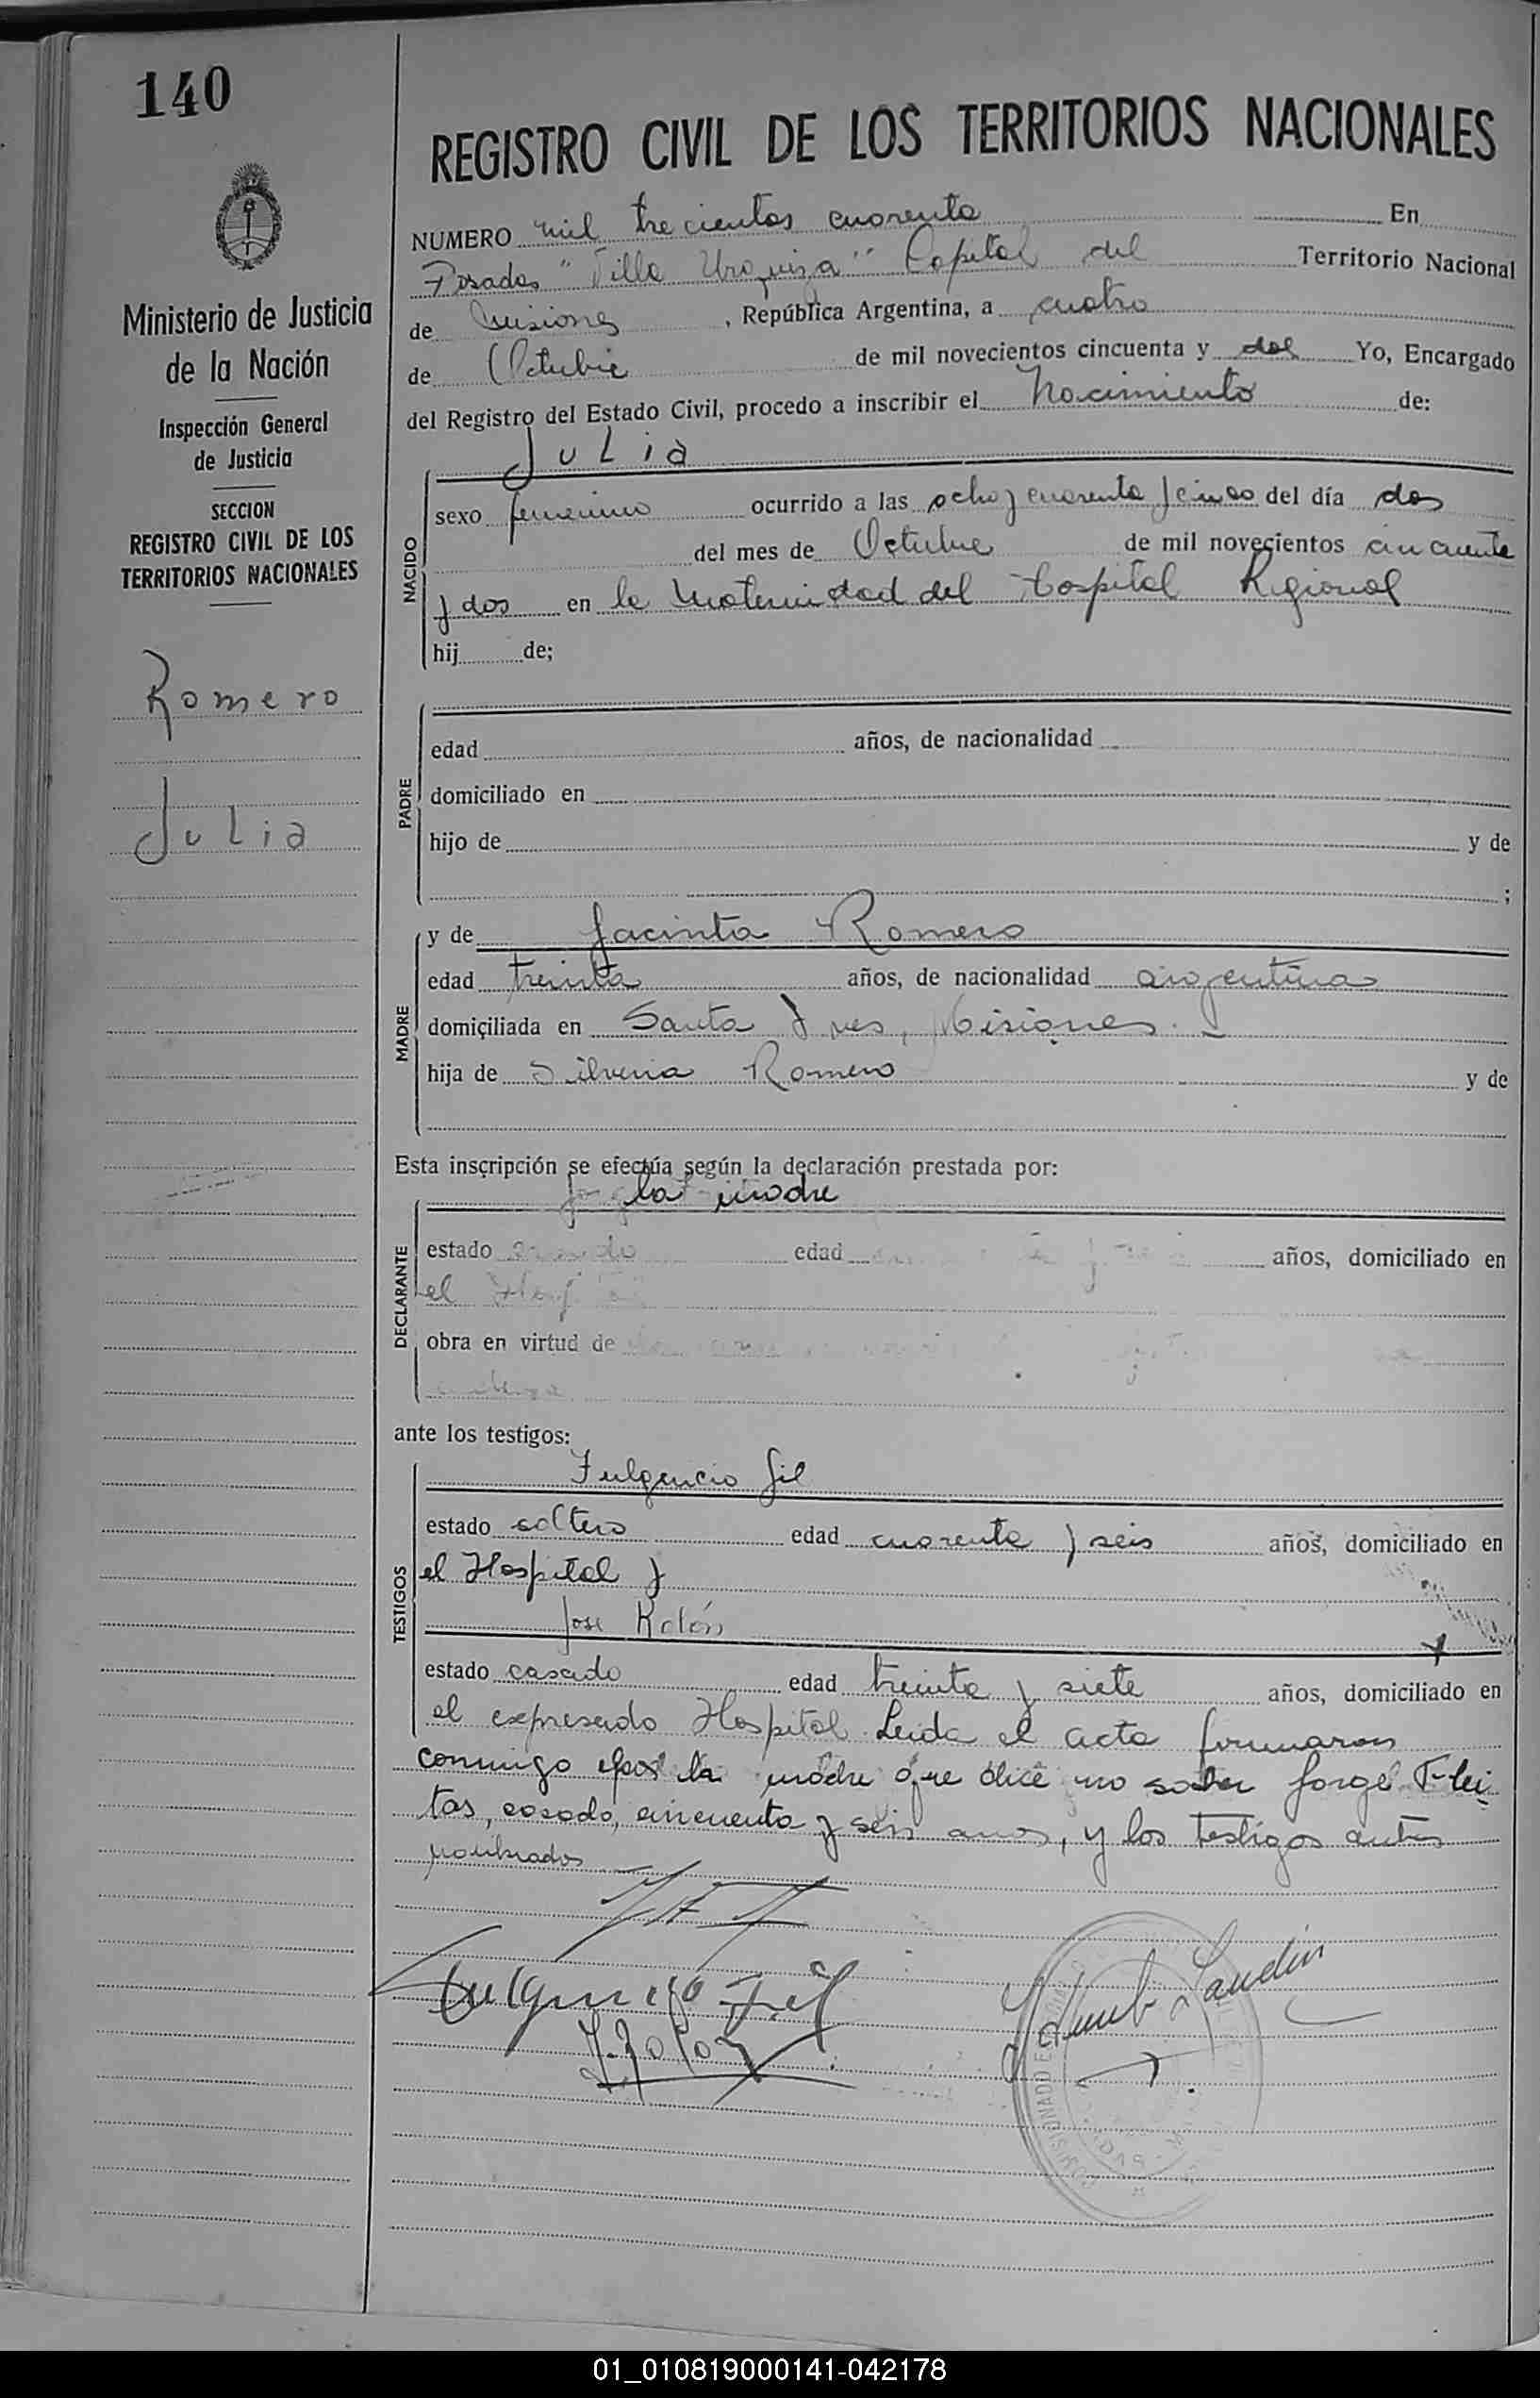 140
REGISTRO CIVIL DE LOS TERRITORIOS NACIONALES
Ministerio de Justicia
de la Nación
Inspección General
de Justicia
SECCION
REGISTRO CIVIL DE LOS
TERRITORIOS NACIONALES
Romero
Julia
NUMERO mil trecientos cuarenta En
Posadas "Villa Urquiza" Capital del Territorio Nacional
de Misiones, República Argentina, a cuatro
de Octubre de mil novecientos cincuenta y dos Yo, Encargado
del Registro del Estado Civil, procedo a inscribir el Nacimiento de:
Julia
NACIDO
sexo femenino ocurrido a las ocho y cuarenta y cinco del día dos
del mes de Octubre de mil novecientos cincuenta
y dos en la Maternidad del Hospital Regional
hij de;
PADRE
edad años, de nacionalidad
domiciliado en
hijo de y de
;
MADRE
y de Jacinta Romero
edad treinta años, de nacionalidad argentina
domiciliada en Santa Ines, Misiones.
hija de Silveria Romero y de
Esta inscripción se efectúa según la declaración prestada por:
la madre
DECLARANTE
estado edad años, domiciliado en
el
obra en virtud de
ante los testigos:
TESTIGOS
Fulgencio Gil
estado soltero edad cuarenta y seis años, domiciliado en
el Hospital y
José Rolón
estado casado edad treinta y siete años, domiciliado en
el expresado Hospital. Leida el acta firmaron
conmigo por la madre que dice no saber Jorge Flei-
tas, casado, cincuenta y seis anos, y los testigos antes
nombrados
Fulgencio Gil
J. Rolon
01_010819000141-042178